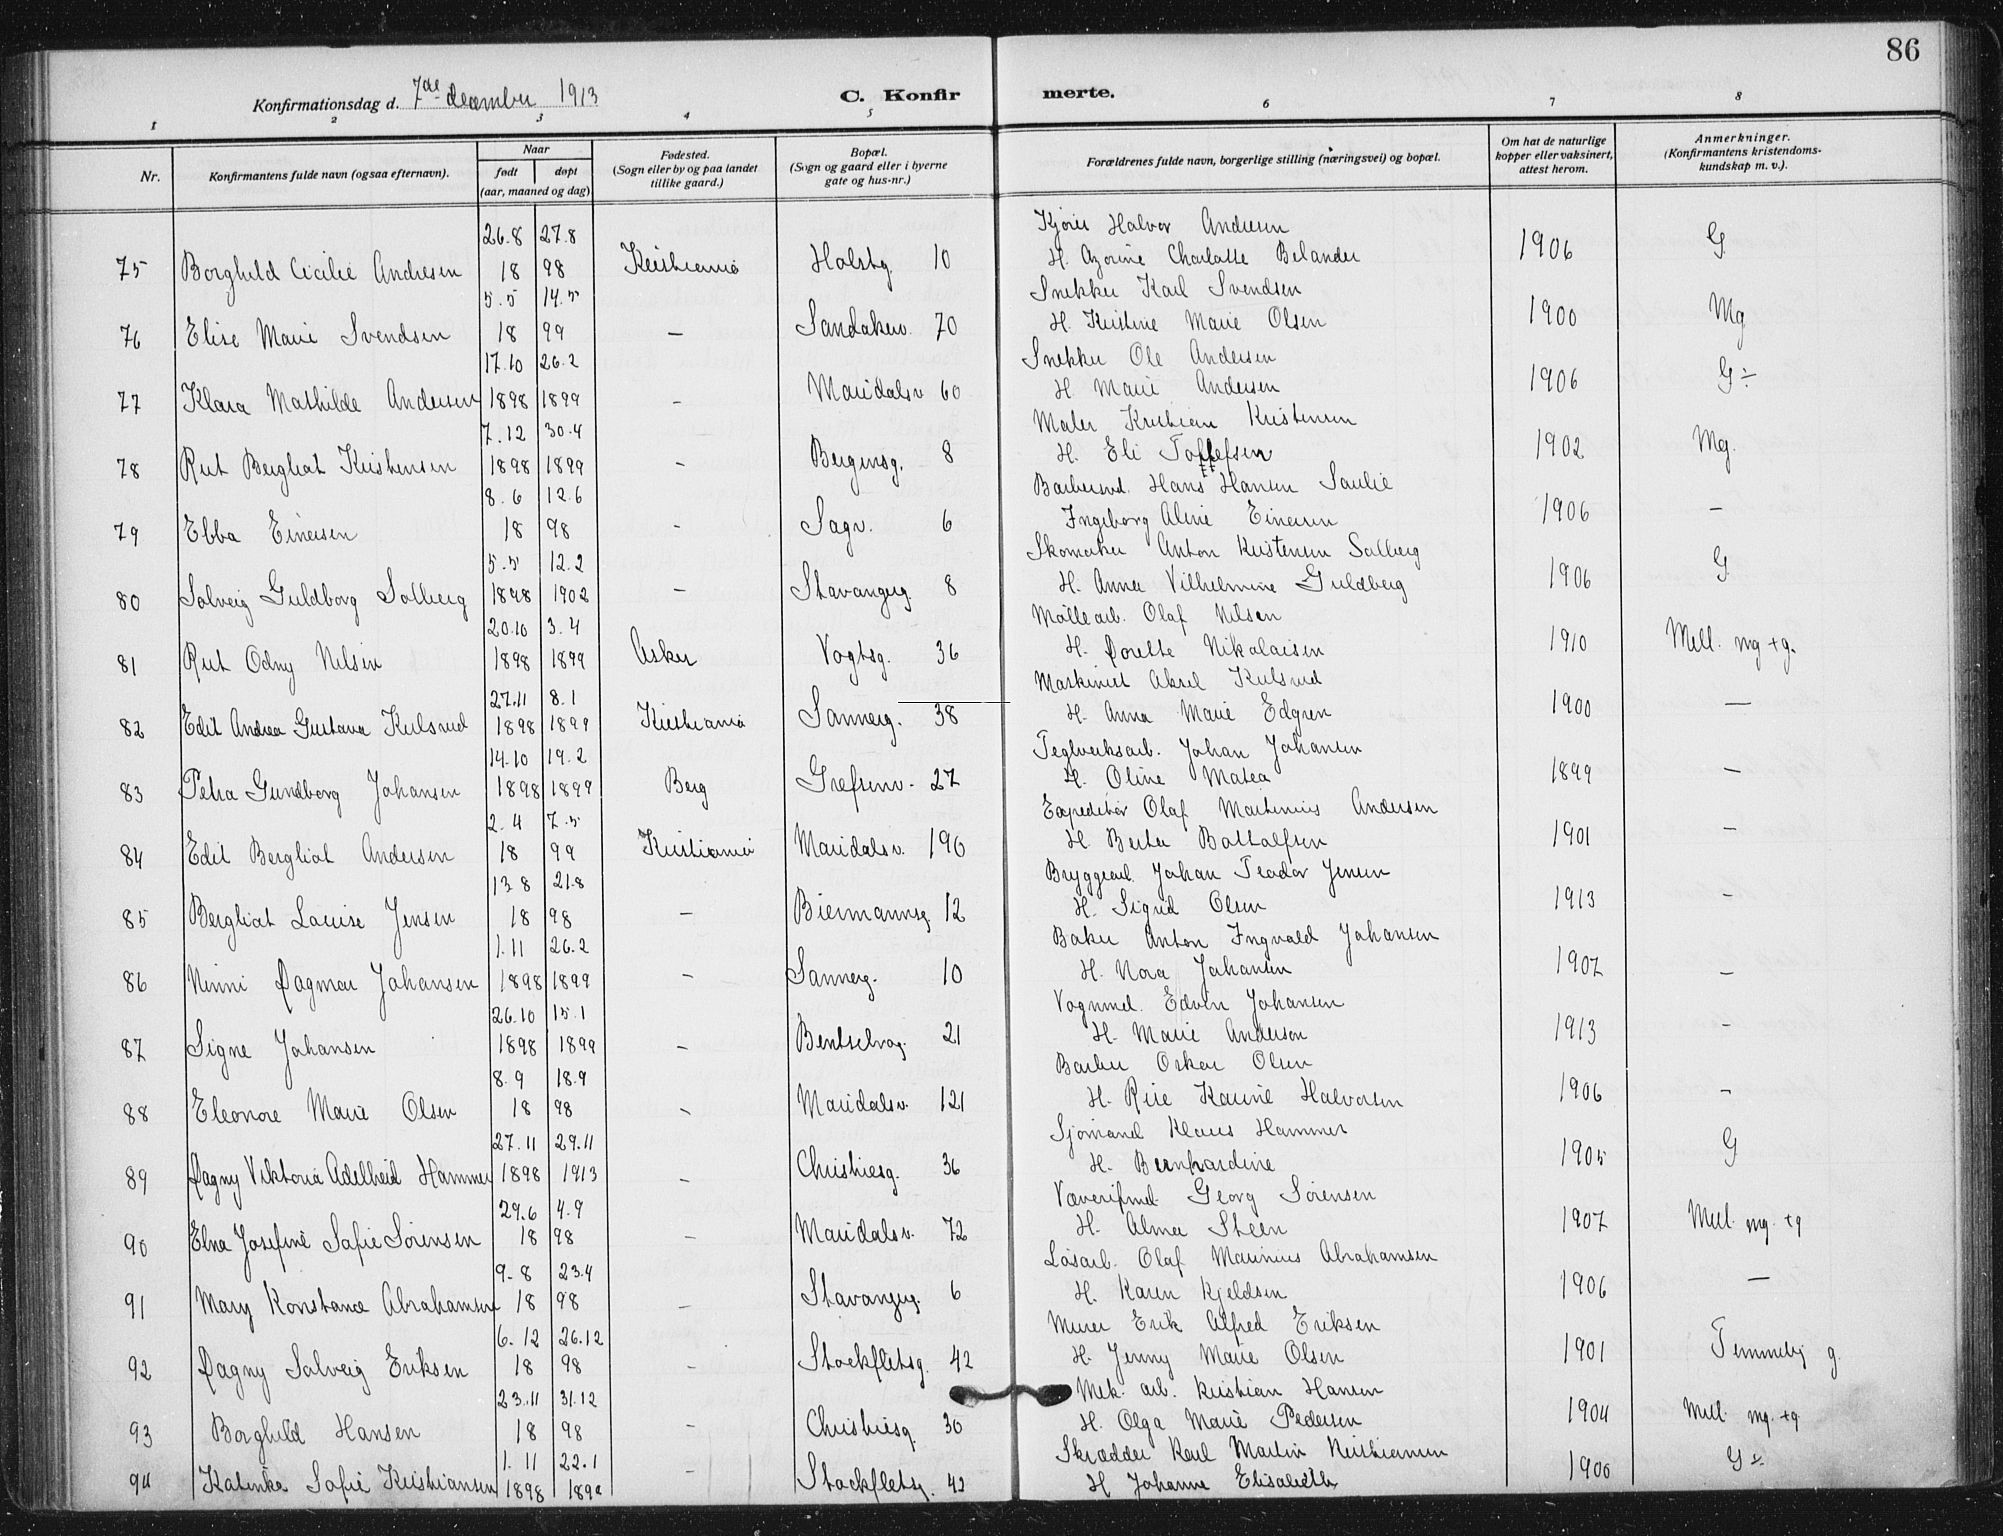 86
Konfirmationsdag d. 7de december 1913
C. Konfirmerte.
1 2 3 4 5 6 7 8
Nr.
Konfirmantens fulde navn (ogsaa efternavn).
Naar
født døpt
(aar, maaned og dag)
Fødested.
(Sogn eller by og paa landet
tillike gaard.)
Bopæl.
(Sogn og gaard eller i byerne
gate og hus-nr.)
Forældrenes fulde navn, borgerlige stilling (næringsvei) og bopæl.
Om hat de naturlige
kopper eller vaksinert,
attest herom.
Anmerkninger.
(Konfirmantens kristendoms-
kundskap m. v.).
26.8 27.8 Kjører Halvor Andresen
75 Borghild Cicilie Andresen 18 98 Kristiania Holstg. 10 H. Azorine Charlotte Belander 1906 G
5.5 14.5 Snekker Karl Svendsen
76 Elise Marie Svendsen 18 99 — Sandakerv. 70 H. Kristine Marie Olsen 1900 Mg
17.10 26.2 Snekker Ole Andersen
77 Klara Mathilde Andersen 1898 1899 — Maridalsv 60 H Marie Andersen 1906 G÷
7.12 30.4 Maler Kristian Kristensen
78 Rut Bergliot Kristensen 1898 1899 - Bergensg. 8 H. Eli Tollefsen 1902 Mg.
8.6 12.6 Barbersvd. Hans Hansen Saulie
79 Ebba Einersen 18 98 - Sagv. 6 Ingeborg Aline Einersen 1906 —
5.5 12.2 Skomaker Anton Kristensen Solberg
80 Solveig Guldborg Solberg 1898 1902 — Stavangerg. 8 H. Anna Vilhelmine Guldberg 1906 G
20.10 3.4 Møllearb. Olaf Nilsen
81 Rut Odny Nilsen 1898 1899 Asker Vogtsg. 36 H. Dorette Nikolaisen 1910 Mell. mg + g.
27.11 8.1 Maskinist Aksel Kulsrud
82 Edit Andrea Gustava Kulsrud 1898 1899 Kristiania Sannerg. 38 H. Anna Marie Edgren 1900 —
14.10 19.2 Teglverksarb. Johan Johansen
83 Petra Gundborg Johansen 1898 1899 Berg Grefsenv. 27 H. Oline Matea 1899 —
2.4 7.5 Expeditør Olaf Martinius Andersen
84 Edit Bergliot Andersen 18 99 Kristiania Maridalsv. 190 H. Berta Bottolfsen 1901 -
13.8 21.8 Bryggeriarb. Johan Teodor Jensen
85 Bergliot Louise Jensen 18 98 — Biermannsg 12 H. Sigrid Olsen 1913 -
1.11 26.2 Baker Anton Ingvald Johansen
86 Ninni Dagmar Johansen 1898 1899 - Sannerg. 10 H. Nora Johansen 1907 -
26.10 15.1 Vognmd. Edvin Johansen
87 Signe Johansen 1898 1899 - Bentsebrog. 21 H. Marie Anderson 1913 -
8.9 18.9 Barber Oskar Olsen
88 Eleonore Marie Olsen 18 98 - Maridalsv. 121 H. Rise Karine Halvorsen 1906 -
27.11 29.11 Sjømand Klaus Hammer
89 Dagny Viktoria Adelheid Hammer 1898 1913 - Christiesg. 36 H. Bernhardine 1905 G
29.6 4.9 Væverifmd. Georg Sørensen
90 Elna Josefine Sofie Sørensen 18 98 - Maridalsv. 72 H. Alma Steen 1907 Mell. mg. + g
9.8 23.4 Løsarb. Olaf Marinius Abrahamsen
91 Mary Konstance Abrahamsen 18 98 - Stavangerg. 6 H. Karen Kjeldsen 1906 —
6.12 26.12 Murer Erik Alfred Eriksen
92 Dagny Solveig Eriksen 18 98 - Stockfletsg. 42 H. Jenny Marie Olsen 1901 Temmelig g.
23.11 31.12 Mek. arb. Kristian Hansen
93 Borghild Hansen 18 98 - Christiesg. 30 H. Olga Marie Pedersen 1904 Mell mg. + g
1.11 22.1 Skrædder Karl Martin Kristiansen
94 Katinka Sofie Kristiansen 1898 1899 - Stockfletsg. 42 H Johanne Elisabeth 1900 G÷